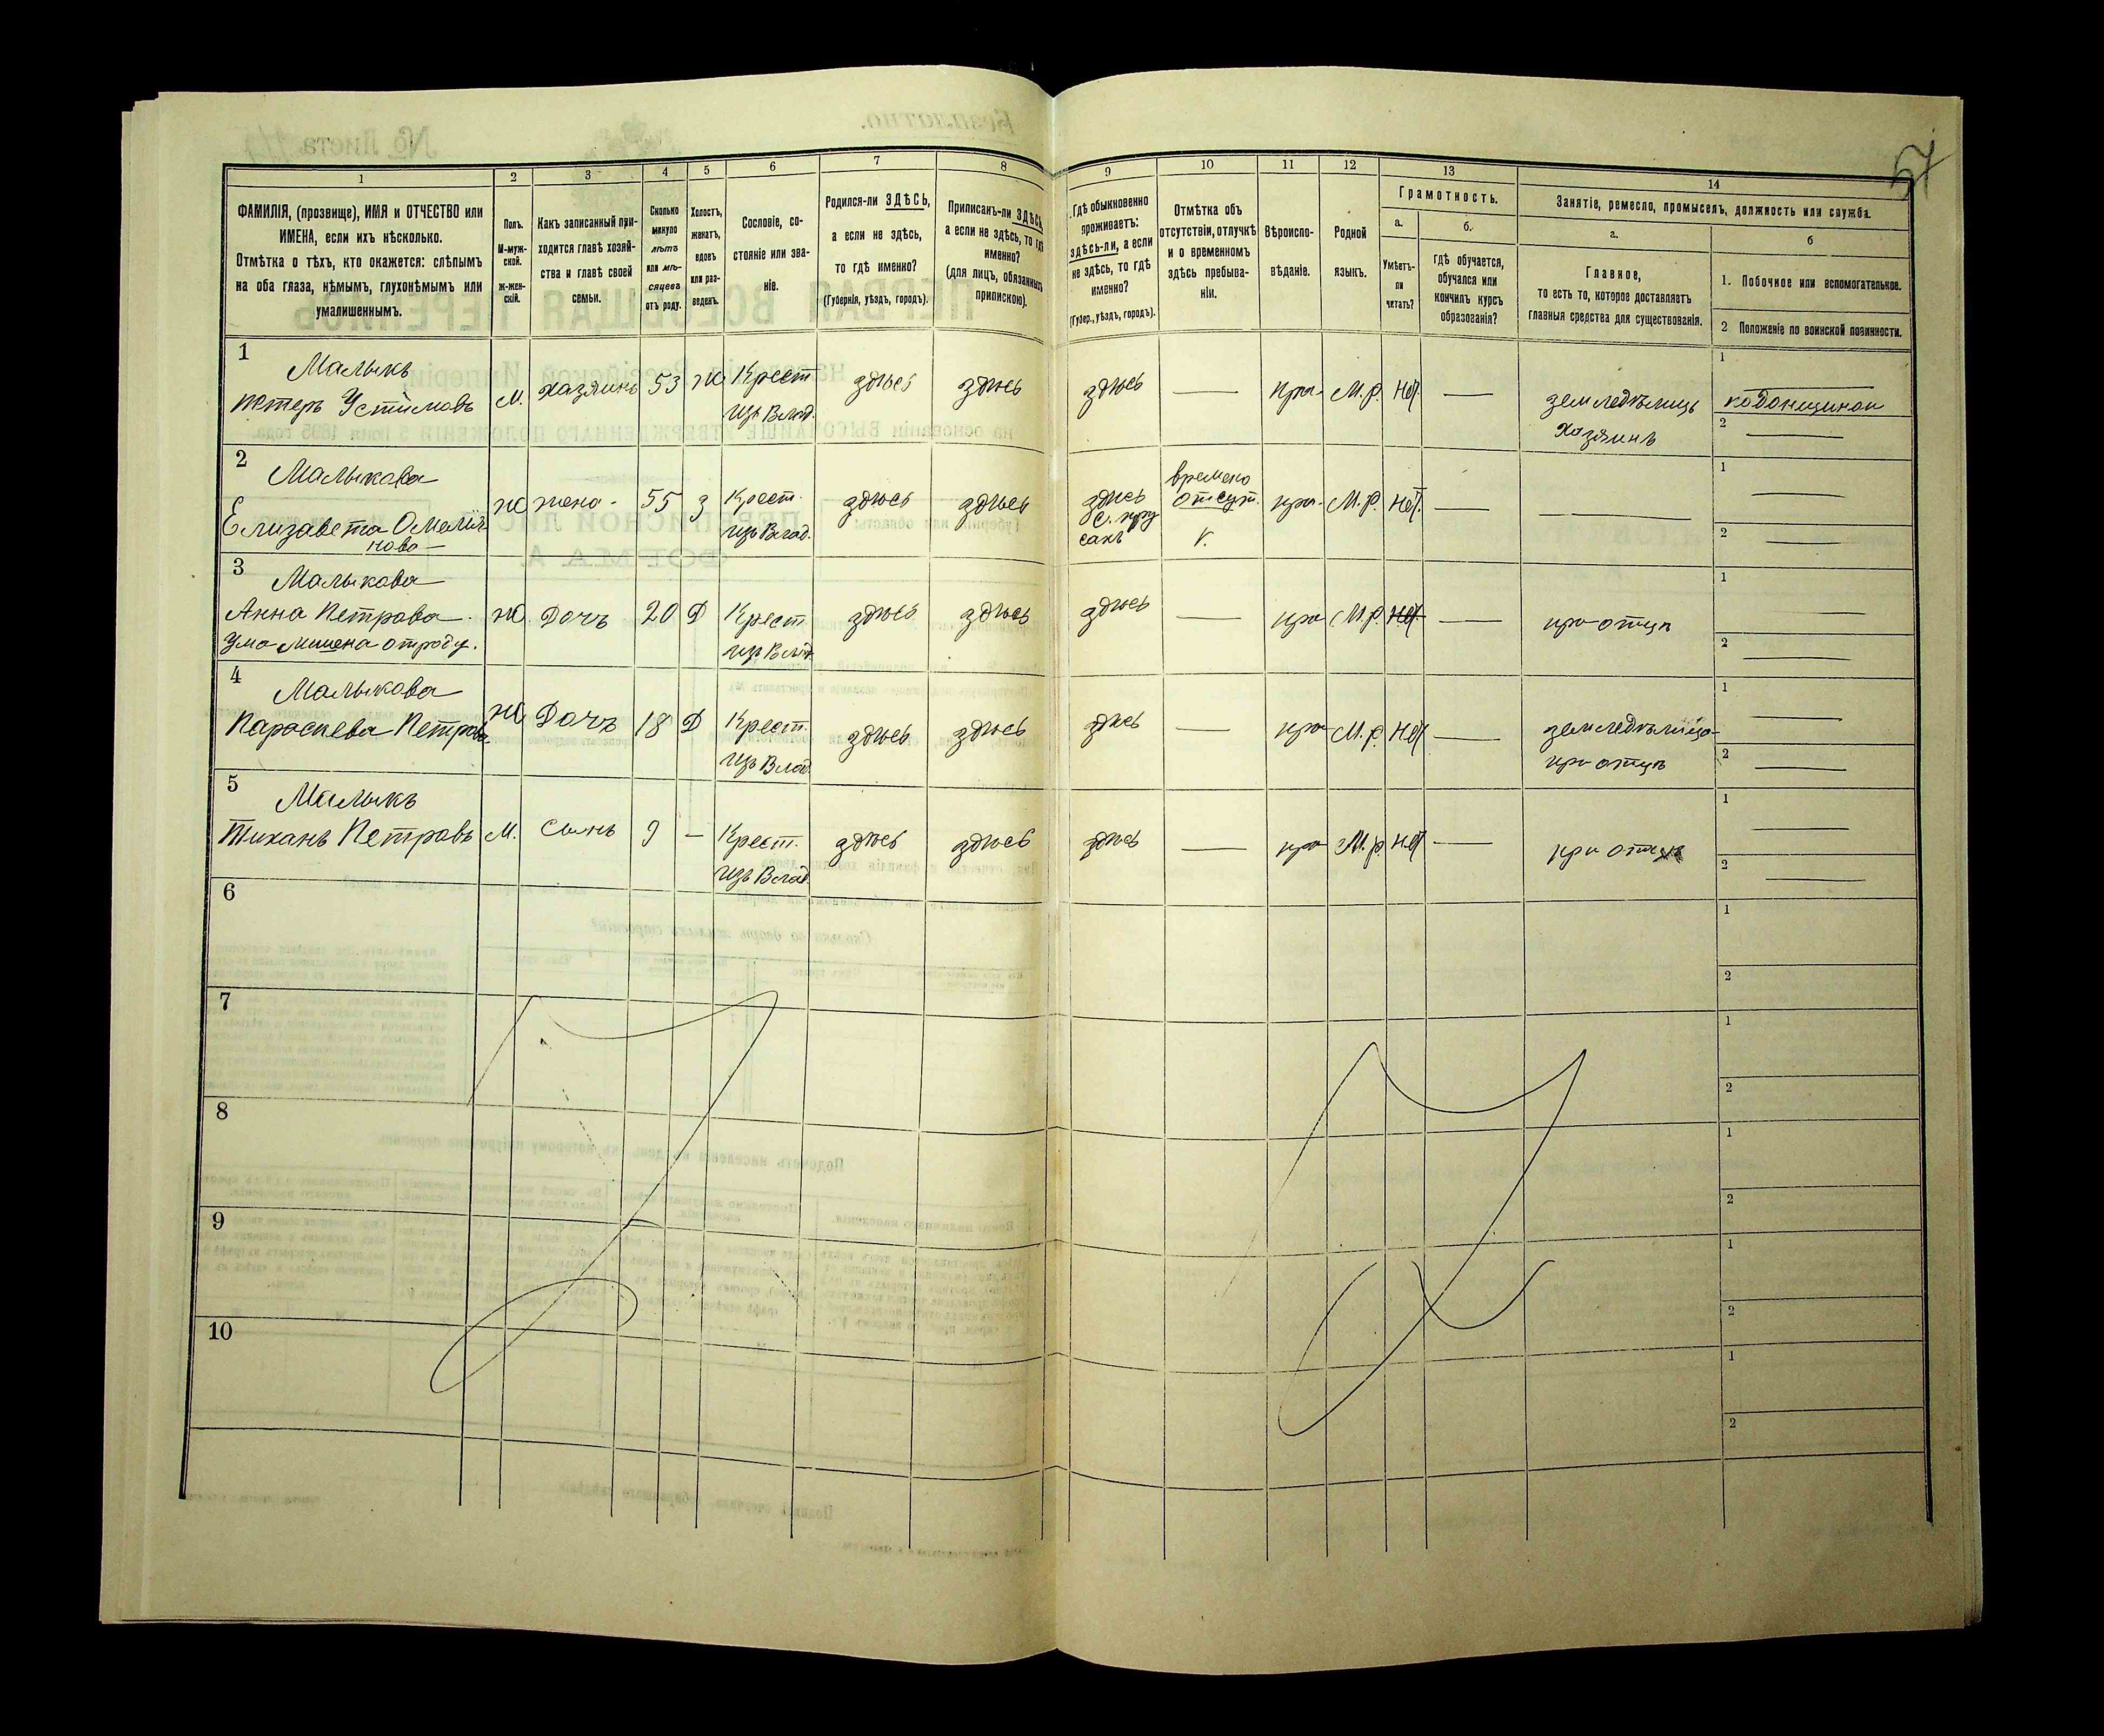 57
1 2 3 4 5 6 7 8 9 10 11 12 13 14
ФАМИЛІЯ, (прозвище), ИМЯ и ОТЧЕСТВО или
ИМЕНА, если ихъ нѣсколько.
Отмѣтка о тѣхъ, кто окажется: слѣпымъ
на оба глаза, нѣмымъ, глухонѣмымъ или
умалишеннымъ.
Полъ.
М-муж-
ской.
ж-жен-
скій.
Какъ записанный при-
ходится главѣ хозяй-
ства и главѣ своей
семьи.
Сколько
минуло
лѣтъ
или мѣ-
сяцевъ
отъ роду.
Холостъ,
женатъ,
вдовъ
или раз-
веденъ.
Сословіе, со-
стояніе или зва-
ніе.
Родился-ли ЗДѢСЬ,
а если не здѣсь,
то гдѣ именно?
(Губернія, уѣздъ, городъ).
Приписанъ-ли ЗДѢСЬ,
а если не здѣсь, то гдѣ
именно?
(для лицъ, обязанныхъ
припискою).
Гдѣ обыкновенно
проживаетъ:
здѣсь-ли, а если
не здѣсь, то гдѣ
именно?
(Губер., уѣздъ, городъ).
Отмѣтка объ
отсутствіи, отлучкѣ
и о временномъ
здѣсь пребыва-
ніи.
Вѣроиспо-
вѣданіе.
Родной
языкъ.
Грамотность.
а.
Умѣетъ-
ли
читать?
б.
гдѣ обучается,
обучался или
кончилъ курсъ
образованія?
Занятіе, ремесло, промыселъ, должность или служба.
а.
Главное,
то есть то, которое доставляетъ
главныя средства для существованія.
б
1. Побочное или вспомогательное.
2 Положеніе по воинской повинности.
1 Малыкъ
Петеръ Устимовъ М. хазяинъ 53 Ж Крест здѣсь здѣсь здѣсь — пра- М.р. Нет — земледѣлицъ 1 —
изъ Влад. хозяинъ 2 —
2 Малыкова
Елизавета Омелія- ж жена- 55 З Крест. здѣсь здѣсь здѣсь времено отсут. пра- М.р. Нет. — — 1 —
нова изъ Влад. V. 2 —
3 Малыкова
Анна Петрова ж. Дочъ 20 Д Крест здѣсь здѣсь здѣсь — пра М.р. Нет. — при отцѣ 1 —
Умалишена отроду. изъ Влад. 2 —
4 Малыкова
Параскева Петрова ж Дочъ 18 Д Крест. здѣсь здѣсь здѣсь — пра М.р. Нет — земледѣлица 1 —
изъ Влад. при отцѣ 2 —
5 Малыкъ
Тиханъ Петровъ М. Сынъ 9 — Крест. здѣсь здѣсь здѣсь — пра М.р. Нет — при отцѣ 1 —
изъ Влад. 2 —
6 1
2
7 1
2
8 1
2
9 1
2
10 1
2